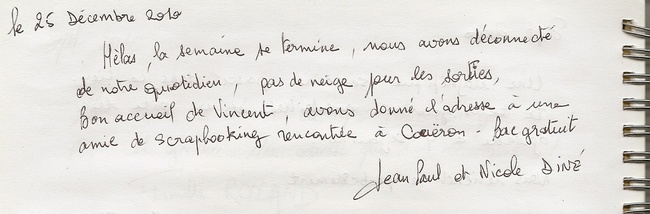 le 25 Décembre 2010
Hélas, la semaine se termine, nous avons déconnecté
de notre quotidien, pas de neige pour les sorties,
Bon accueil de Vincent, avons donné l'adresse à une
amie de scrapbooking rencontrée à Couëron - bac gratuit
Jean Paul et Nicole DINÉ